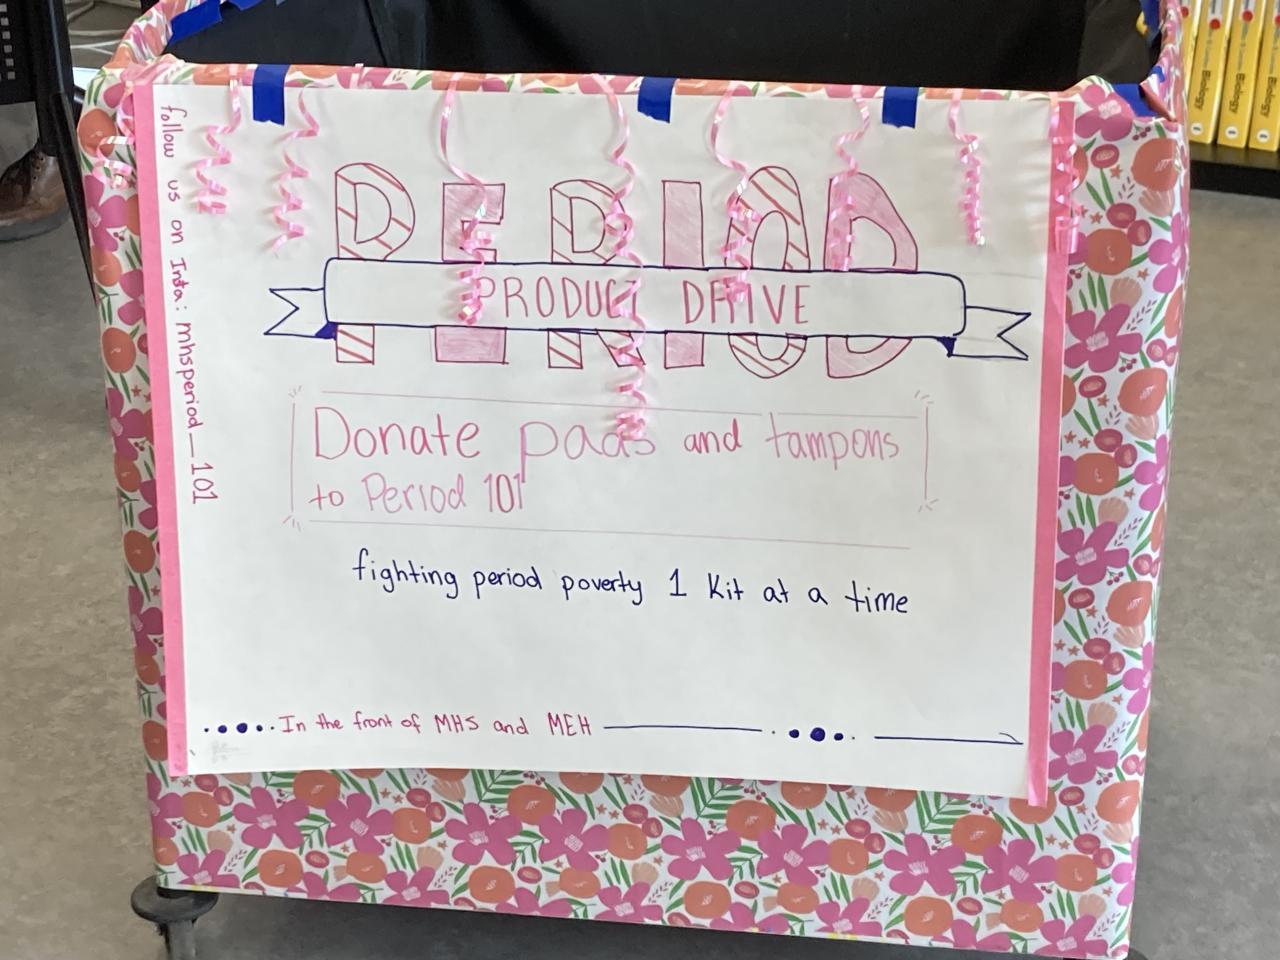 PERIOD
PRODUCT DRIVE
Donate pads and tampons
to Period 101
fighting period poverty 1 kit at a time
In the front of MHS and MEH
follow us on Insta: mhsperiod_101
Biology
Biology
Biology